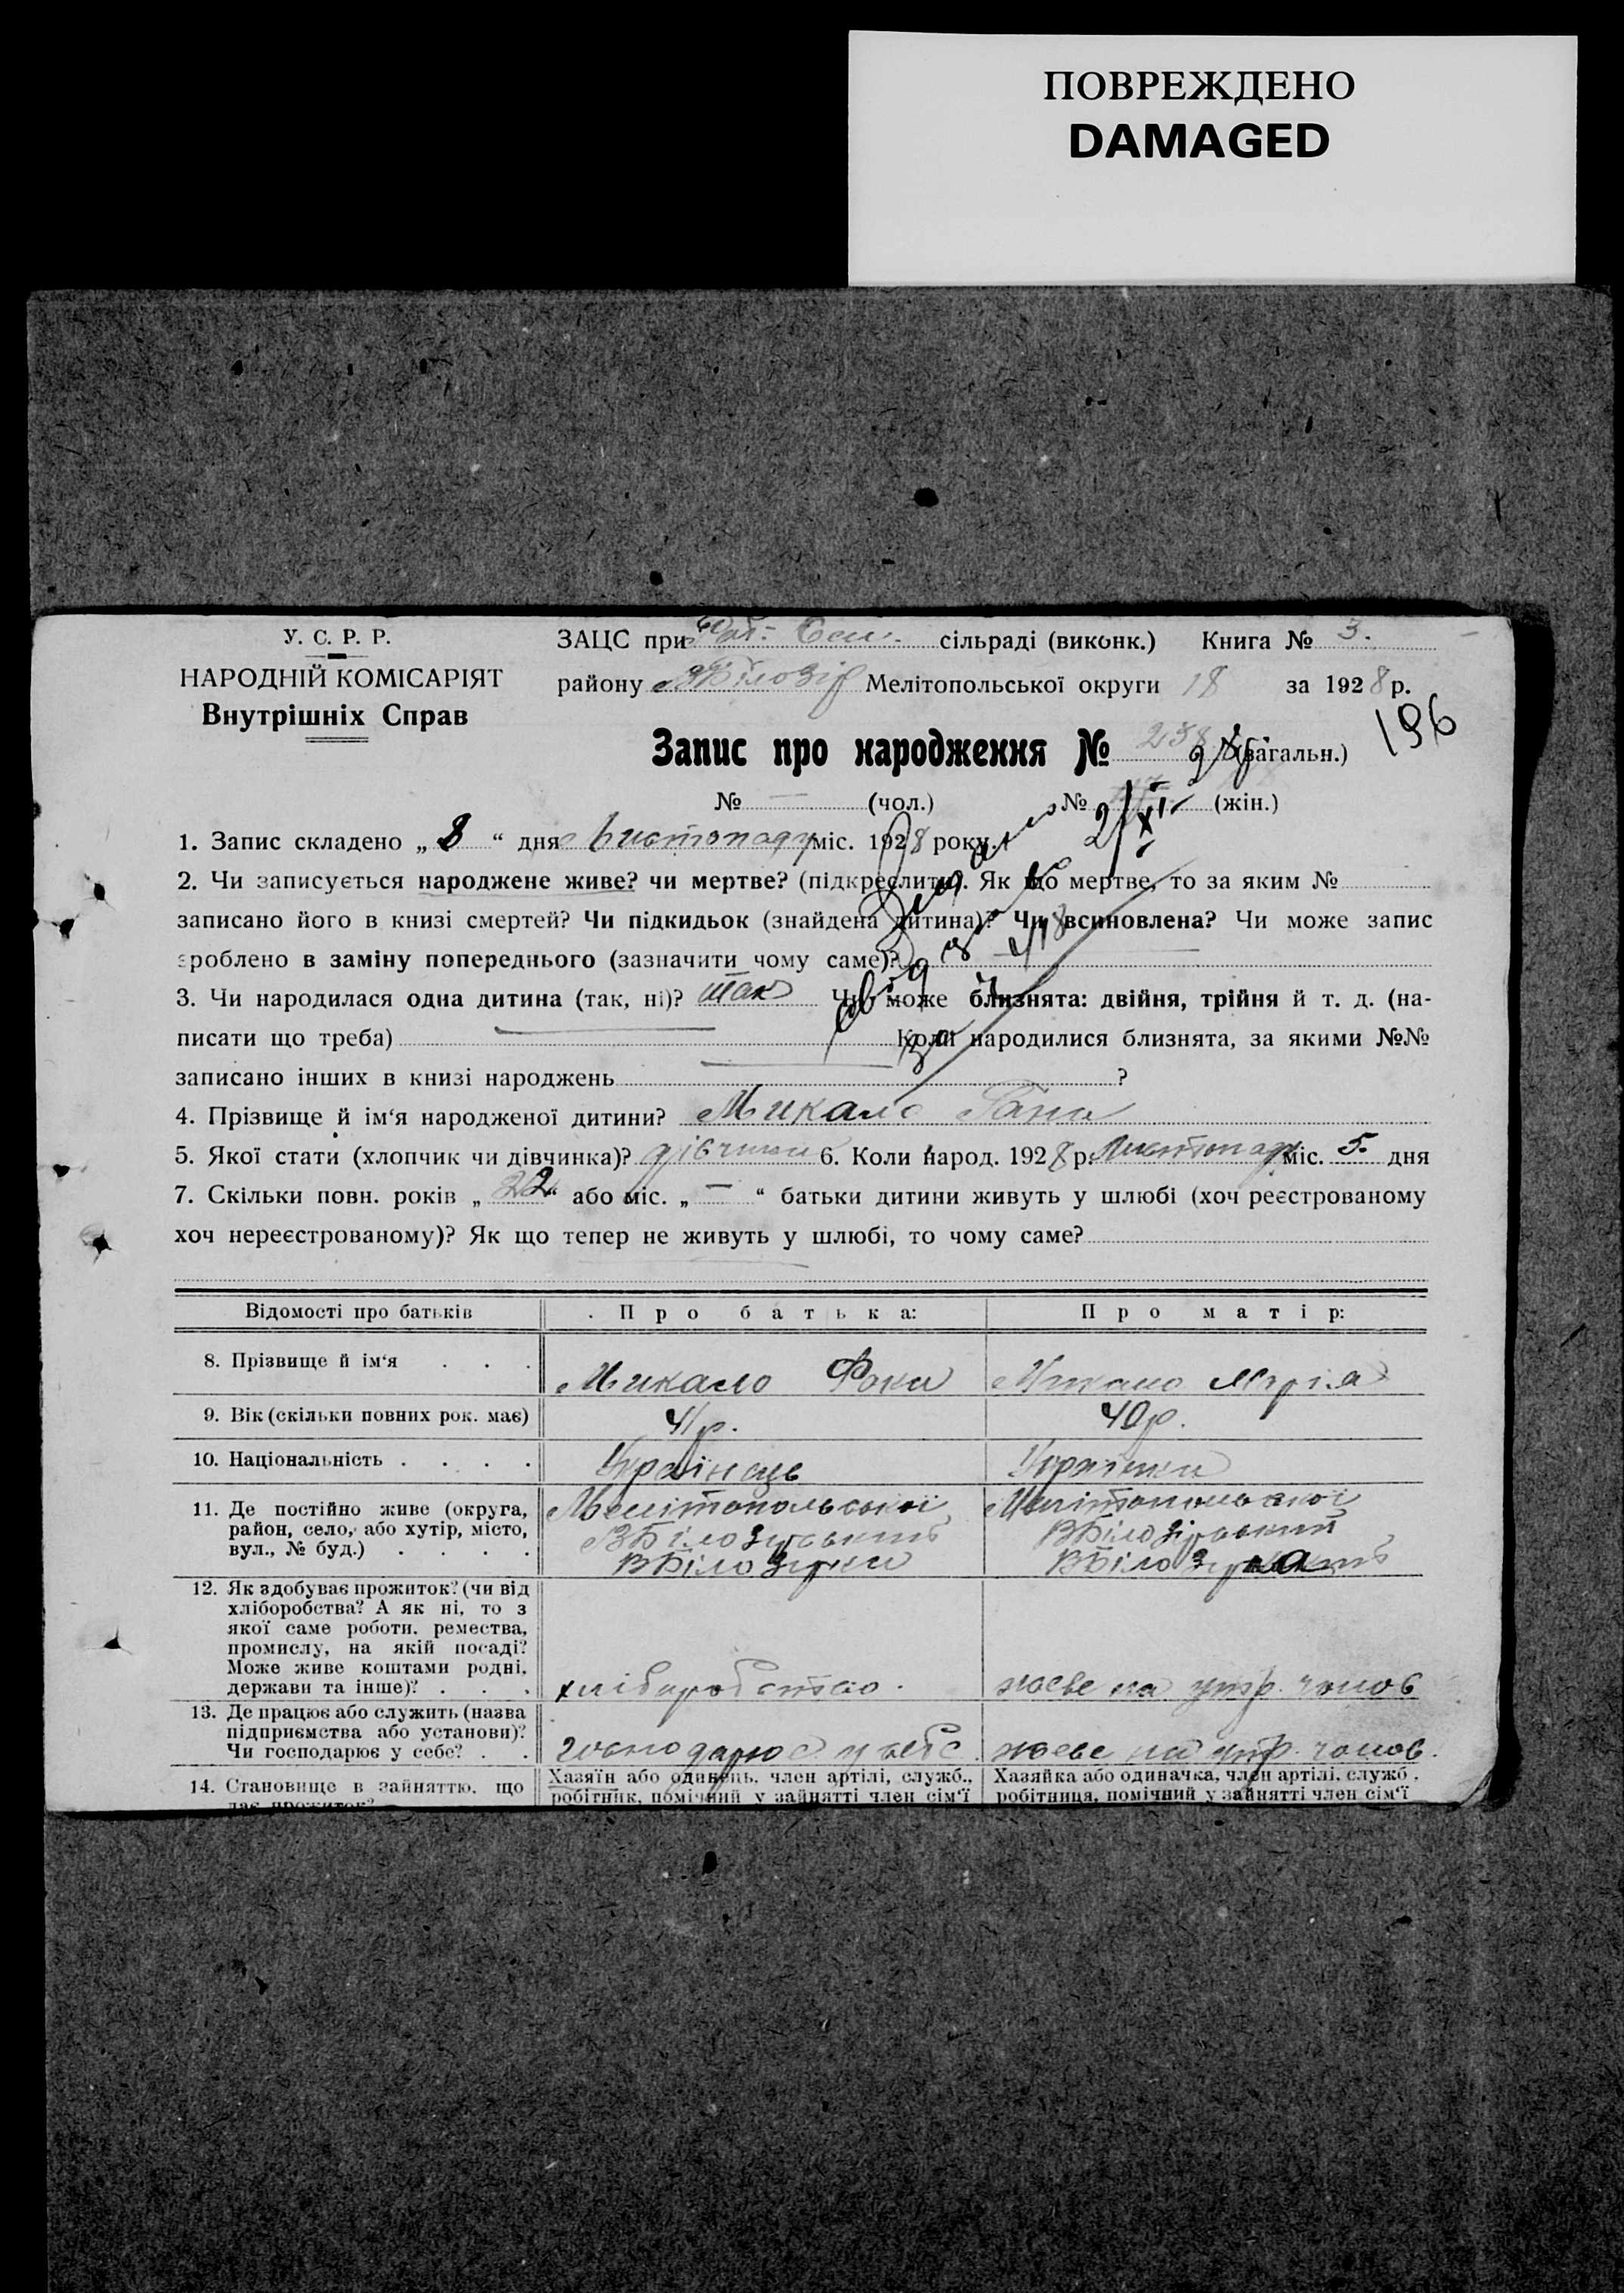 ПОВРЕЖДЕНО
DAMAGED
У. С. Р. Р.
НАРОДНІЙ КОМІСАРІЯТ
Внутрішніх Справ
ЗАЦС при сільраді (виконк.) Книга № 3.
району В Білозір Мелітопольської округи 18 за 1928 р.
196
Запис про народження № 238 (загальн.)
№ — (чол.) № (жін.)
1. Запис складено „ 8 “ дня Листопаду міс. 1928 року.
2. Чи записується народжене живе? чи мертве? (підкреслити). Як що мертве, то за яким №
записано його в книзі смертей? Чи підкидьок (знайдена дитина)? Чи всиновлена? Чи може запис
зроблено в заміну попереднього (зазначити чому саме)?
3. Чи народилася одна дитина (так, ні)? так Чи може близнята: двійня, трійня й т. д. (на-
писати що треба) Коли народилися близнята, за якими №№
записано інших в книзі народжень ?
4. Прізвище й ім‘я народженої дитини? Микало Ганна
5. Якої стати (хлопчик чи дівчинка)? дівчинка 6. Коли народ. 1928 р. Листопада міс. 5 дня
7. Скільки повн. років „ 22 “ або міс. „ — “ батьки дитини живуть у шлюбі (хоч реєстрованому
хоч нереєстрованому)? Як що тепер не живуть у шлюбі, то чому саме?
Відомості про батьків Про батька: Про матір:
8. Прізвище й ім‘я . . . Микало Фока Микало Марія
9. Вік (скільки повних рок. має) 41 р. 40 р.
10. Національність . . . . Українець Українка
11. Де постійно живе (округа,
район, село, або хутір, місто,
вул., № буд.) . . . .
Мелітопольської
ВБілозірський
ВБілозірка
Мелітопольської
ВБілозірський
ВБілозірка
12. Як здобуває прожиток? (чи від
хліборобства? А як ні, то з
якої саме роботи, ремества,
промислу, на якій посаді?
Може живе коштами родні,
держави та інше)? . . .
хліборобство.
живе на утр. чолов
13. Де працює або служить (назва
підприємства або установи)?
Чи господарює у себе? . .
господарює у себе
живе на утр. чолов.
14. Становище в зайняттю, що
дає прожиток?
Хазяїн або одинець, член артілі, служб.,
робітник, помічний у зайнятті член сім‘ї
Хазяйка або одиначка, член артілі, служб.,
робітниця, помічний у зайнятті член сім‘ї